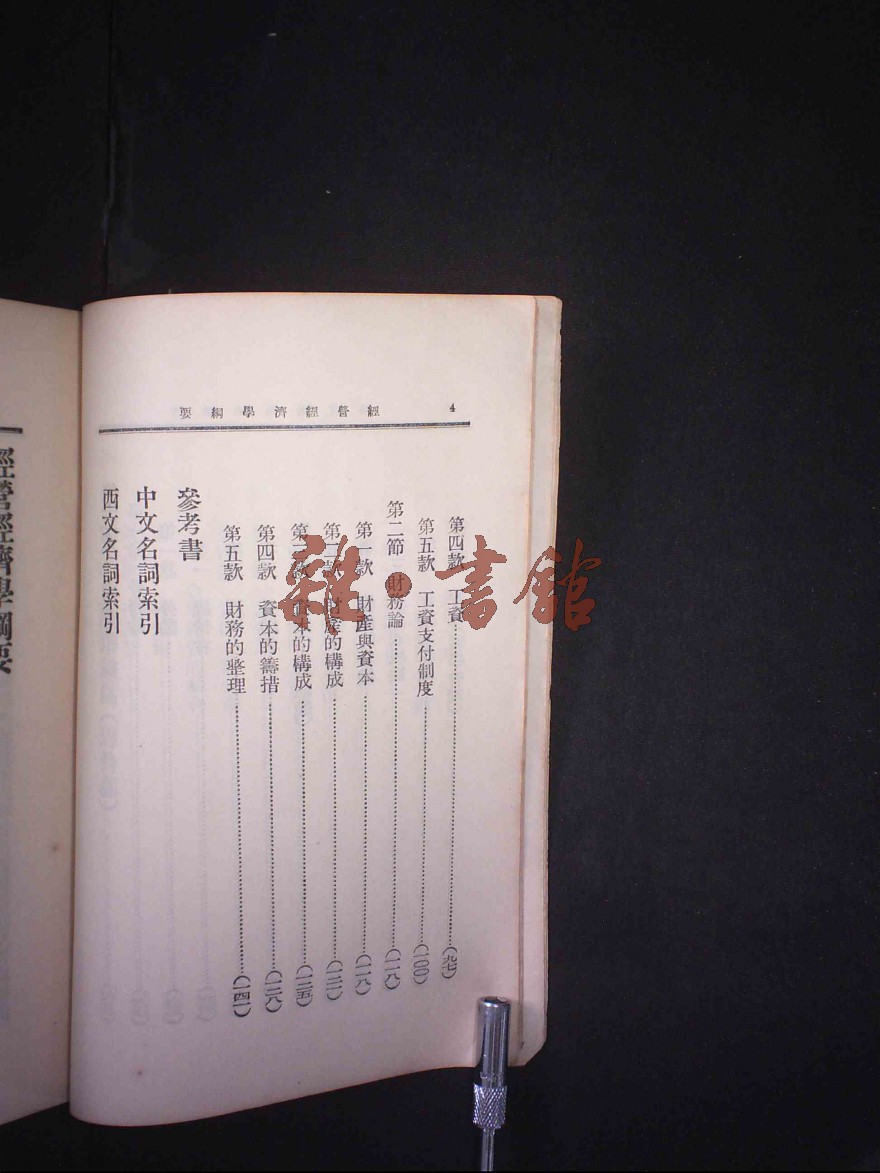 4 經營經濟學綱要
第四款 工資……(九七)
第五款 工資支付制度……(一〇〇)
第二節 財務論……(一一八)
第一款 財產與資本……(一一八)
第二款 財產的構成……(一二一)
第三款 資本的構成……(一二五)
第四款 資本的籌措……(一二八)
第五款 財務的整理……(一四一)
參考書
中文名詞索引
西文名詞索引
經營經濟學綱要
雜·書館